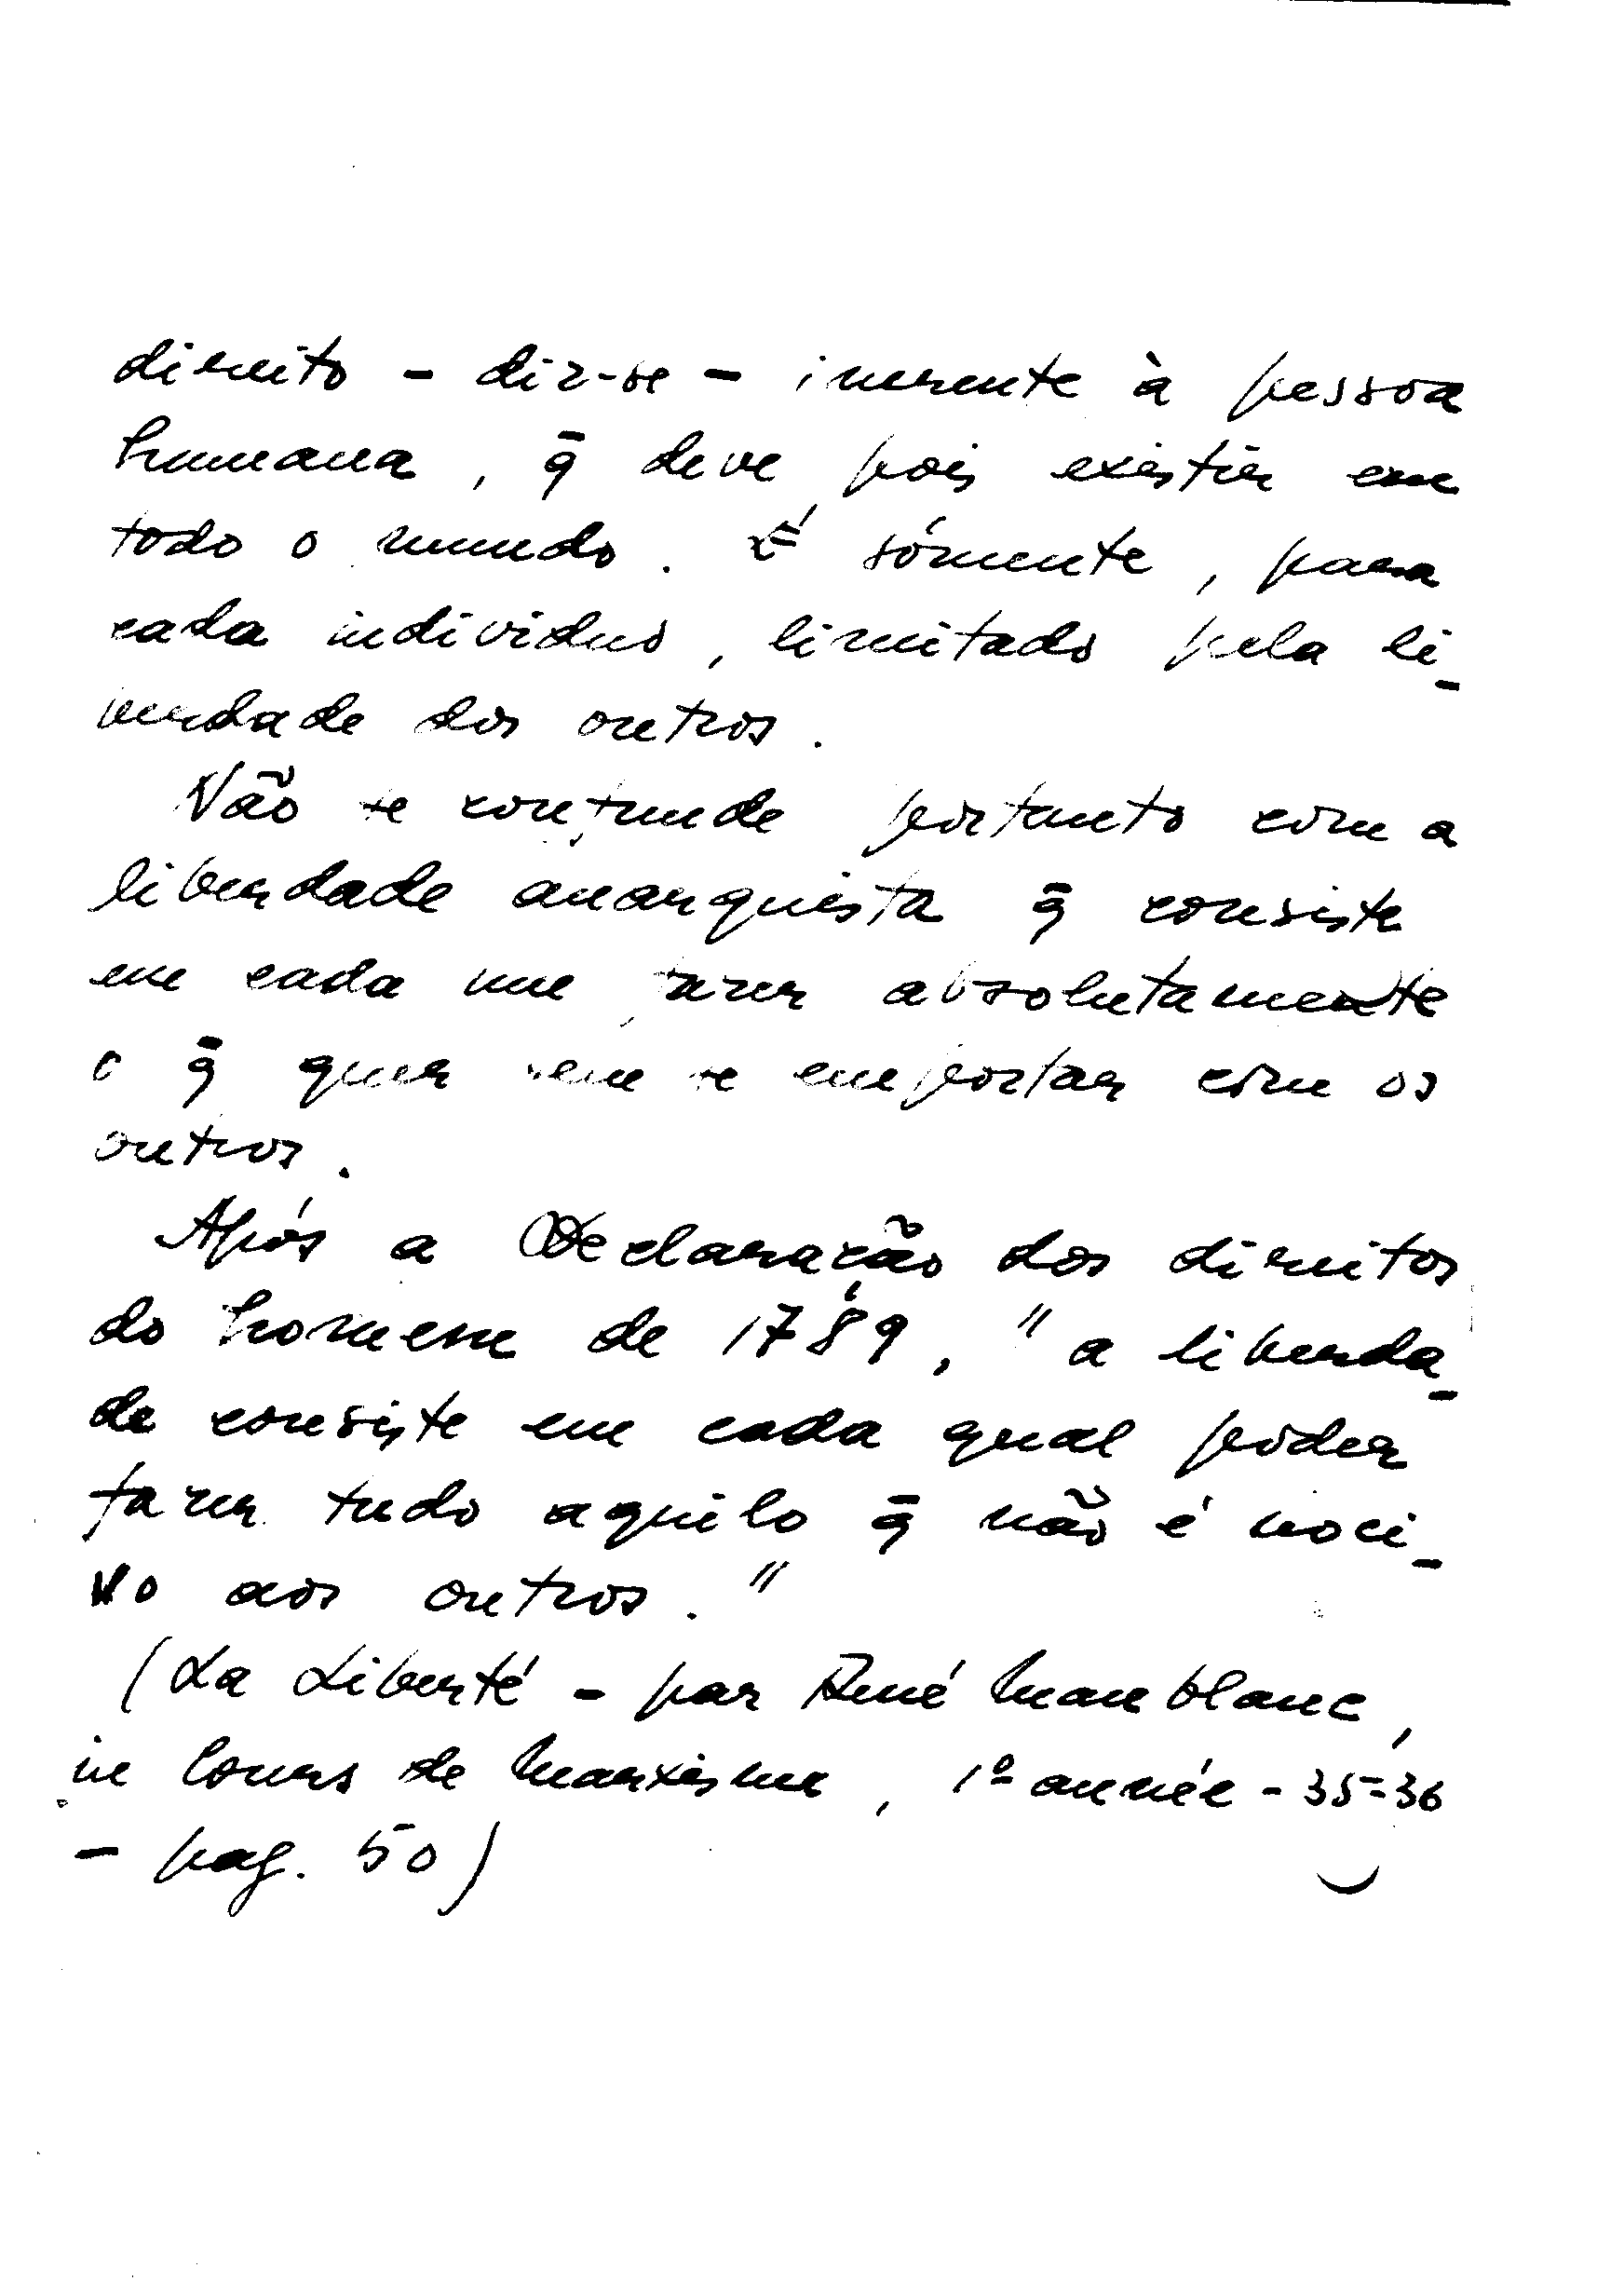 direito - diz-se - inerente à pessoa
humana, q̄ deve pois existir em
todo o mundo. É sómente, para
cada individuo, limitado pela li-
berdade dos outros.
Não se confunde portanto com a
liberdade anarquista q̄ consiste
em cada um fazer absolutamente
o q̄ quer sem se emportar com os
outros.
Após a Declaração dos direitos
do homem de 1789, "a liberda-
de consiste em cada qual poder
fazer tudo aquilo q̄ não é noci-
vo aos outros."
(La Liberté - par René Maublanc,
in Cours de Marxisme, 1º année - 35-36
- pag. 50)